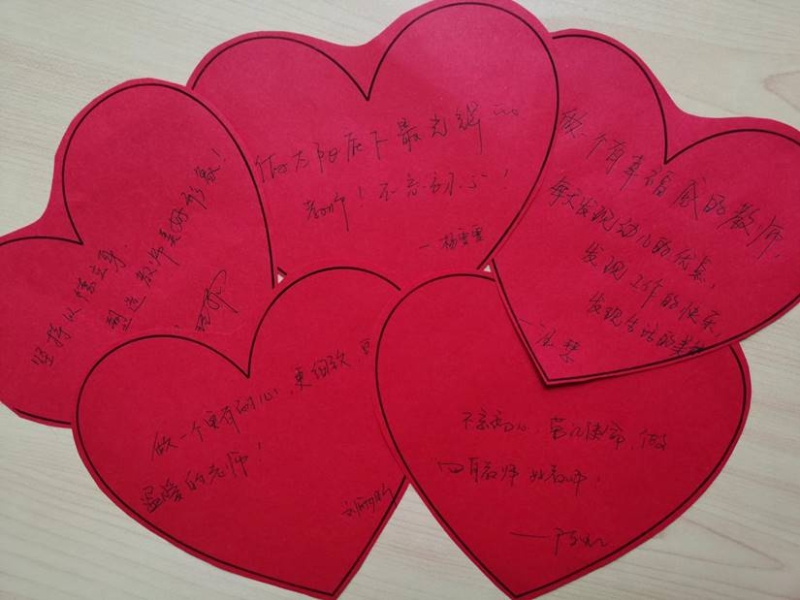 坚持以德立身,
塑造教师美好形象!
做为阳底下最光辉的
老师!不忘初心!
—杨雪雪
做个有幸福感的教师,
每天发现幼儿的优点,
发现工作的快乐,
发现生活的美好
做一个更有耐心,更细致,更
温馨的老师!
不忘初心,牢记使命,做
四有教师好教师!